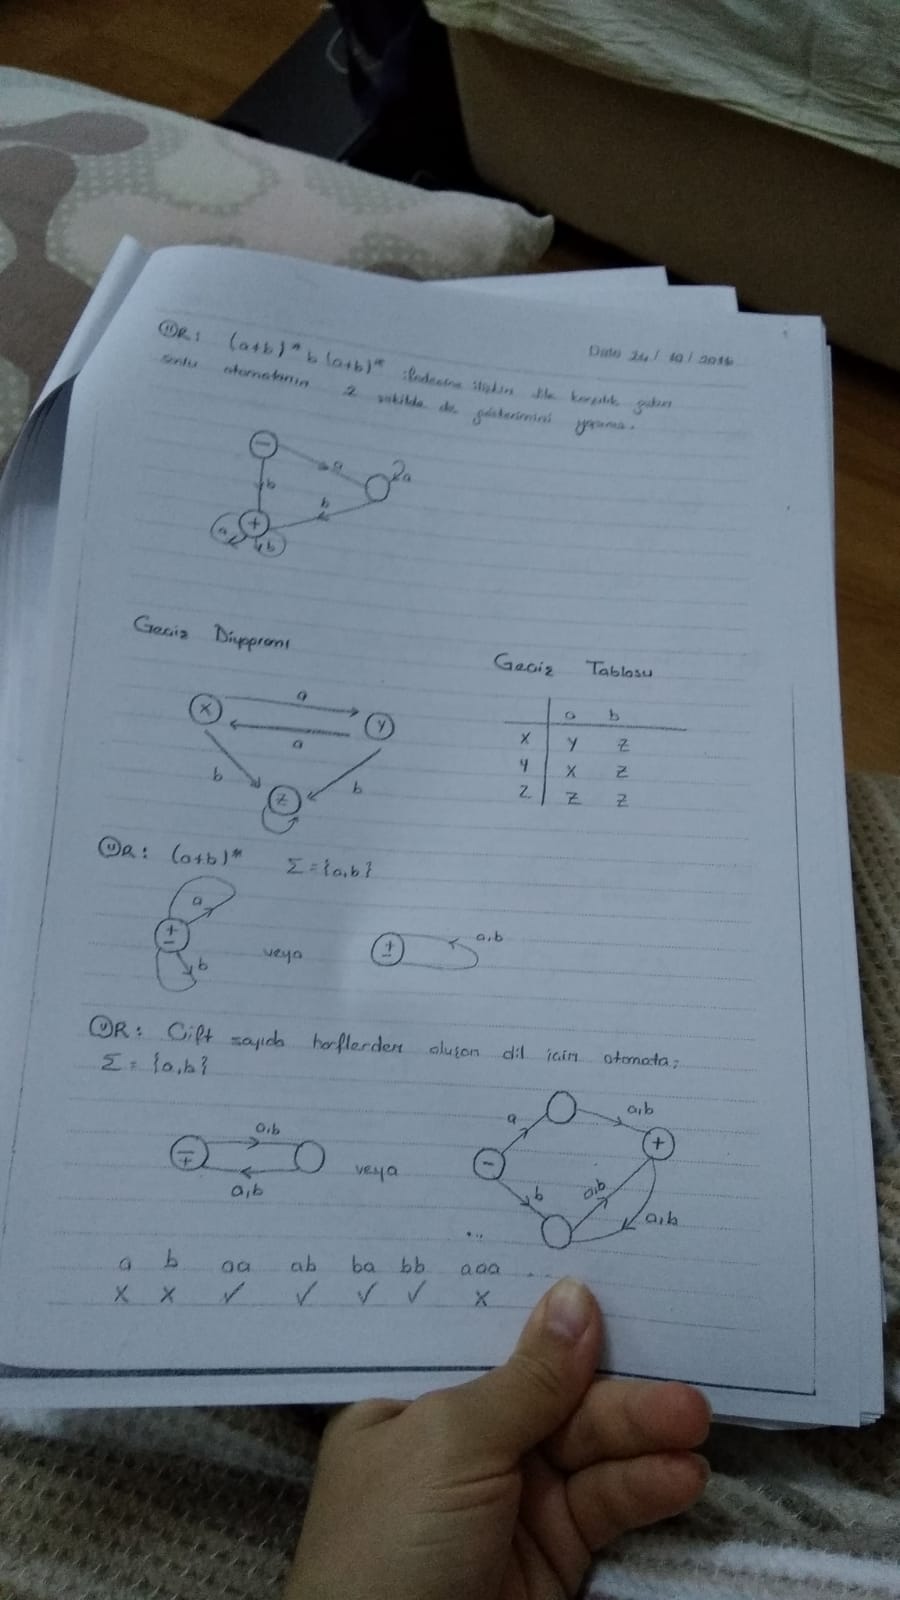 ÖR: (a+b)* b (a+b)* ifadesine ilişkin dile karşılık gelen
Date 24 / 10 / 2016
sonlu otomatanın 2 şekilde de gösterimini yapınız.
-
a
a
b
b
+
a
b
Geciz Diyagramı
Geciz Tablosu
X a Y
a
b b
Z
a b
X Y Z
Y X Z
Z Z Z
ÖR: (a+b)* Σ={a,b}
a
±
b
veya
±
a,b
ÖR: Çift sayıda harflerden oluşan dil için otomata;
Σ = {a,b}
a,b
∓
a,b
veya
a
a,b
-
+
b
a,b
a,b
...
a b aa ab ba bb aaa ...
X X ✓ ✓ ✓ ✓ X